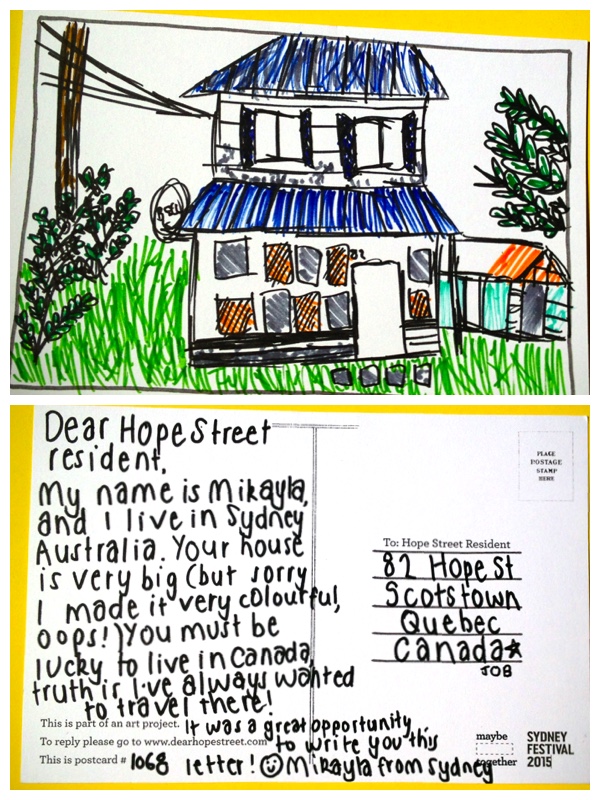 82
Dear Hope Street
resident,
My name is Mikayla,
and I live in Sydney
Australia. Your house
is very big (but sorry
I made it very colourful,
oops!) You must be
lucky to live in Canada
truth is I've always wanted
to travel there!
It was a great opportunity
to write you this
letter! Mikayla from Sydney
This is part of an art project.
To reply please go to www.dearhopestreet.com
This is postcard # 1068
PLACE
POSTAGE
STAMP
HERE
To: Hope Street Resident
82 Hope St
Scotstown
Quebec
Canada
JOB
maybe
together
SYDNEY
FESTIVAL
2015